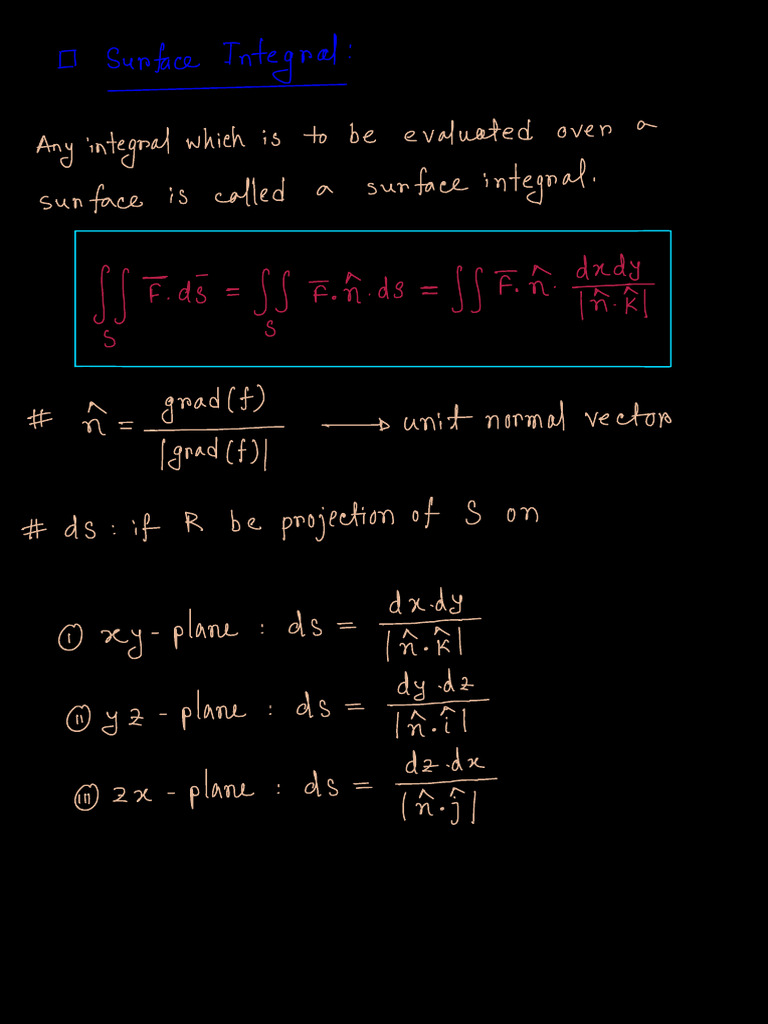 □ Surface Integral:
Any integral which is to be evaluated over a
surface is called a surface integral.
∬_S F̅. ds̅ = ∬_S F̅. n̂. ds = ∬ F̅. n̂. dxdy/|n̂. k̂|
# n̂ = grad(f)/|grad(f)| ⟶ unit normal vector
# ds : if R be projection of S on
(i) xy - plane : ds = dx.dy/|n̂. k̂|
(ii) yz - plane : ds = dy.dz/|n̂. î|
(iii) zx - plane : ds = dz.dx/|n̂. ĵ|